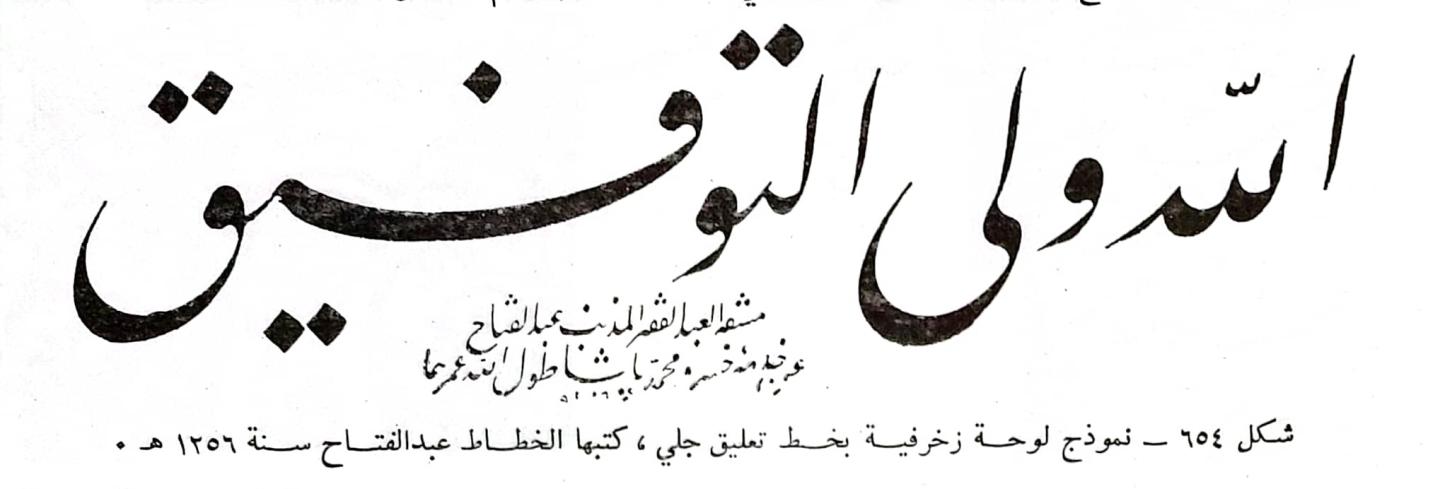 الله ولي التوفيق
مشقه العبد الفقير المذنب عبد الفتاح
خسرو محمد پاشا طول الله عمرهما
شكل ٦٥٤ ــ نموذج لوحة زخرفية بخط تعليق جلي ، كتبها الخطاط عبدالفتاح سنة ١٢٥٦ هـ ٠